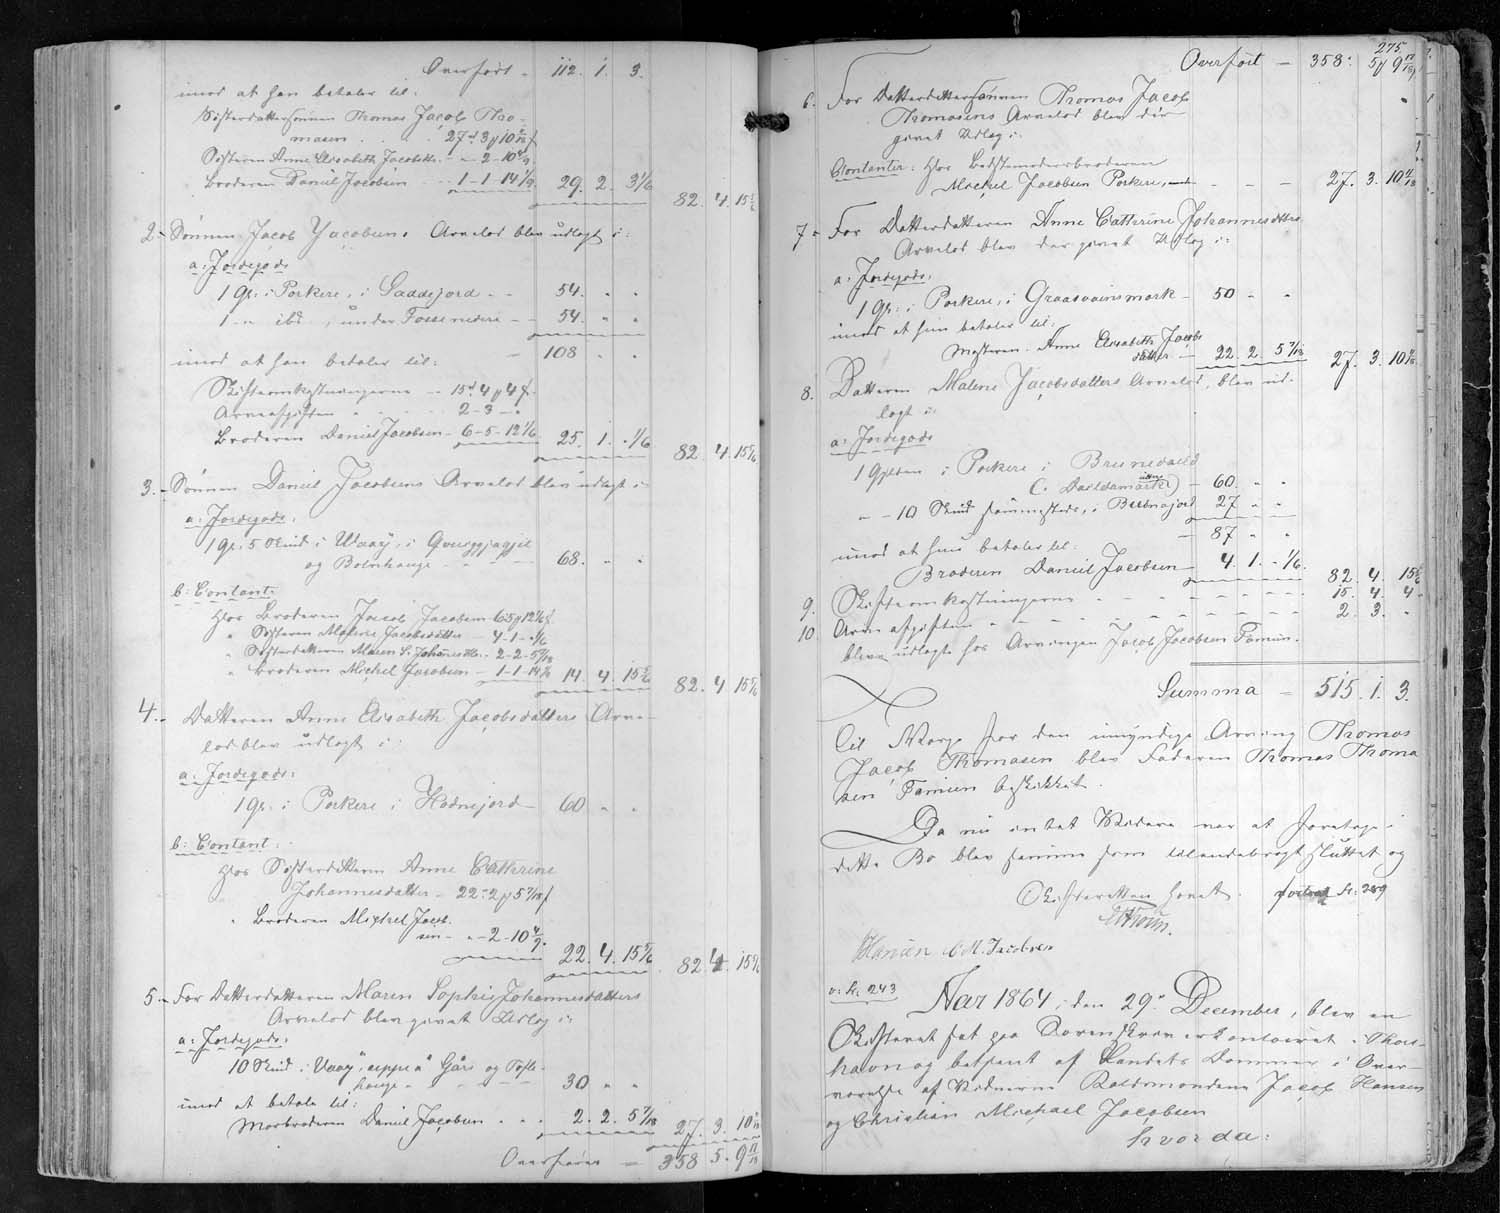 Overført - 112. 1. 3.
imod at han betaler til:
Søsterdattersønnen Thomas Jacob Tho-
masen . . . 27 rd 3 # 10 4/18 ß
Søsteren Anne Elisabeth Jacobsdtr. - " - 2 - 10 4/9
Broderen Daniel Jacobsen - 1 - 1 - 14 1/9 29. 2. 3 1/6
82. 4. 15 5/6
2. Sønnen Jacob Jacobsens Arvelod blev udlagt i:
a: Jordegods
1 Gl. i Porkere, i Gaddejord - - 54. " "
1 - " ibd., under Fossenedere - - 54. " "
- 108 " "
imod at han betaler til:
Skifteomkostningerne - 15 rd 4 # 4 ß
Arveafgiften " - - - 2 - 3 - "
Broderen Daniel Jacobsen - 6 - 5 - 12 1/6 25. 1. " 1/6
82. 4. 15 5/6
3. Sønnen Daniel Jacobsens Arvelod blev udlagt i
a: Jordegods:
1 Gl. 5 Skind i Waag, i
og Bolnhauge - - - 68. " "
b: Contant:
Hos Broderen Jacob Jacobsen 6 5 # 12 1/6 ß
" Søsteren Malene Jacobsdatter - 4 - 1 - " 1/6
" Søsterdatteren Maren S. Johannesdtr. - 2 - 2 - 5 7/18
" Broderen Michel Jacobsen - 1 - 1 - 14 1/9 14. 4. 15 5/6
82. 4. 15 5/6
4. Datteren Anne Elisabeth Jacobsdatters Arve-
lod blev udlagt i:
a: Jordegods:
1 Gl. i Porkere i Hodnejord - 60 " "
b: Contant:
Hos Søsterdatteren Anne Catherine
Johannesdatter - 22 - 2 # 5 7/18 ß
" Broderen Michel Jacob-
sen - " - 2 - 10 4/9
22. 4. 15 5/6 82. 4. 15 5/6
5. For Datterdatteren Maren Sophie Johannesdatters
Arvelod blev givet Udlæg i:
a: Jordegods:
10 Skind i Vaag, uppe á Gáre og Tofte-
hauge - - - - 30 " "
imod at betale til:
Morbroderen Daniel Jacobsen . . . 2. 2. 5 7/18 27. 3. 10 11/18
Overføres - 358 5. 9 17/18
275.
Overført - 358. 5 # 9 17/18
6. For Datterdattersønnen Thomas Jacob
Thomasens Arvelod blev der
givet Udlæg i:
Contanter: Hos Bedstemoderbroderen
Michel Jacobsen Porkere, - - - 27. 3. 10 11/18
7. For Datterdatteren Anne Catherine Johannesdatters
Arvelod blev der givet Udlæg i:
a: Jordegods:
1 Gl. i Porkere, i Graasvainsmark - 50 " "
imod at hun betaler til:
Mosteren Anne Elisabeth Jacobs-
datter - 22. 2. 5 7/18 27. 3. 10 11/18
8. Datteren Malene Jacobsdatters Arvelod, blev ud-
lagt i:
a: Jordegods
1 Gylden i Porkere i Brunedaild
(i Daildamark) - 60. " "
" - 10 Skind sammesteds, i Bulbnajord 27 " "
- 87 " "
imod at hun betaler til:
Broderen Daniel Jacobsen - 4. 1. " 1/6
82. 4. 15 5/6
9. Skifteomkostningerne - - - - - 15. 4. 4.
10. Arveafgiften - - - - - 2. 3. "
bleve udlagte hos Arvingen Jacob Jacobsen Famien.
Summa - 515. 1. 3.
Til Værge for den umyndige Arving Thomas
Jacob Thomasen blev Faderen Thomas Thoma
sen Famien beskikket.
Da nu intet Videre var at foretage i
dette Bo blev samme som tilendebragt sluttet og
Skifteretten hævet. fortsat Fr. 289
Hansen C. M. Jacobsen
v: Fr: 243
Aar 1864, den 29de December, blev en
Skifteret sat paa Sorenskriverkontoiret i Thors-
havn og betjent af Landets Dommer i Over-
værelse af Vidnerne Raadsmændene Jacob Hansen
og Christian Michael Jacobsen
hvorda: